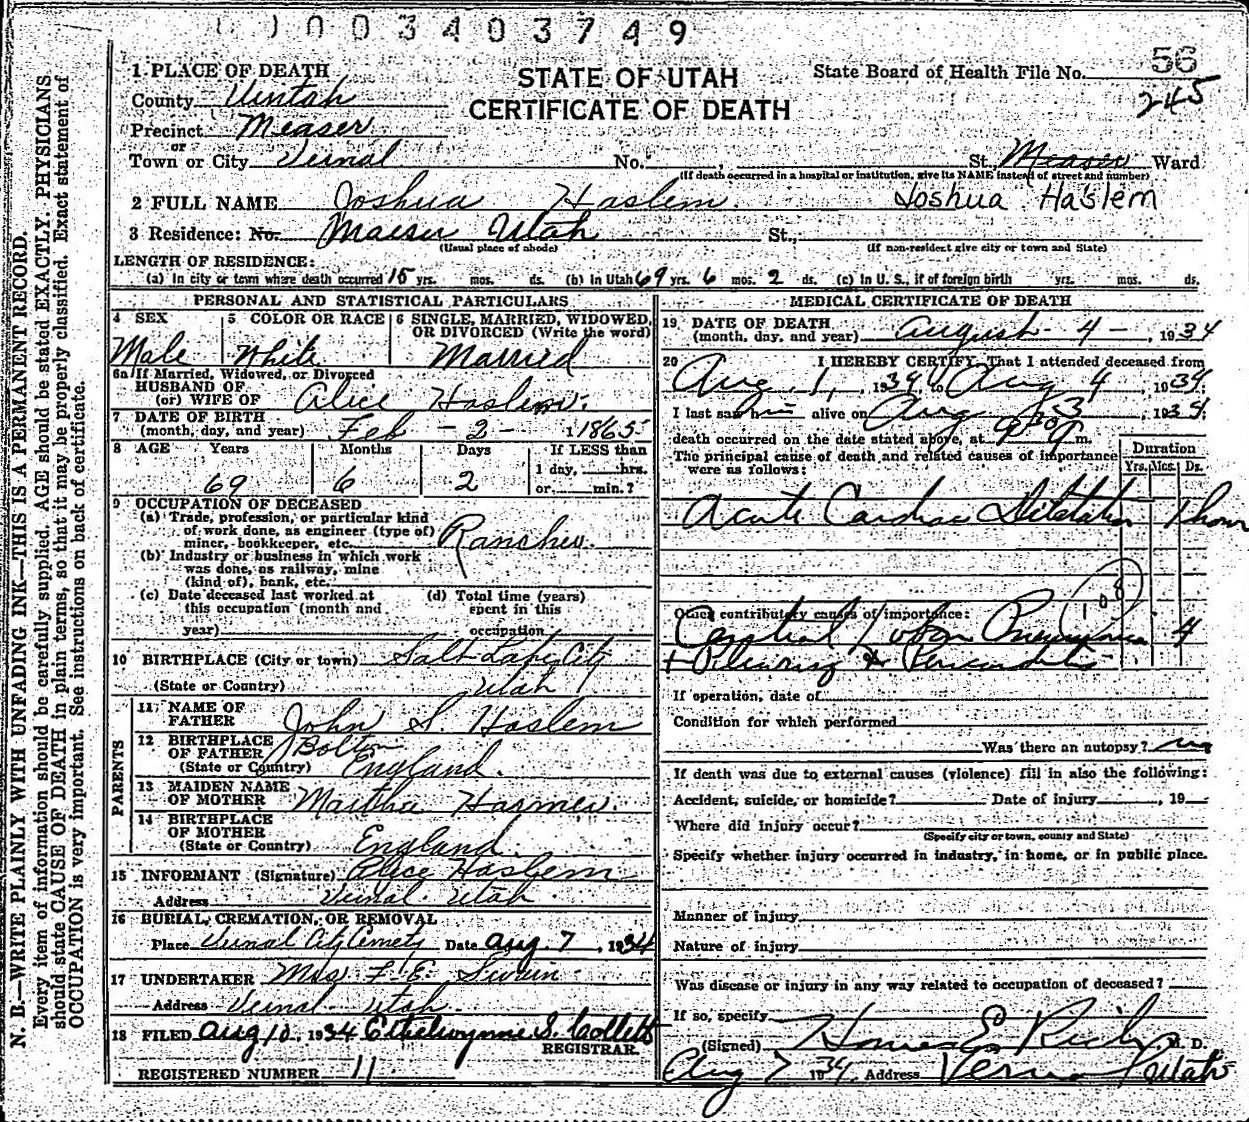 0003403749
56
1 PLACE OF DEATH
STATE OF UTAH
State Board of Health File No.
245
County Uintah
CERTIFICATE OF DEATH
Precinct Measer
or
Town or City Vernal No. , St., Measer Ward
(If death occurred in a hospital or institution, give its NAME instead of street and number)
2 FULL NAME Joshua Haslem. Joshua Haslem
3 Residence: No. Maeser Utah St.,
(Usual place of abode) (If non-resident give city or town and State)
LENGTH OF RESIDENCE:
(a) In city or town where death occurred 15 yrs. mos. ds. (b) In Utah 69 yrs. 6 mos. 2 ds. (c) In U. S., if of foreign birth yrs. mos. ds.
PERSONAL AND STATISTICAL PARTICULARS
4 SEX 5 COLOR OR RACE 6 SINGLE, MARRIED, WIDOWED, OR DIVORCED (Write the word)
Male White Married
6a If Married, Widowed, or Divorced
HUSBAND OF
(or) WIFE OF Alice Haslem.
7 DATE OF BIRTH
(month, day, and year) Feb - 2 - 1865
8 AGE Years Months Days If LESS than
1 day, hrs.
69 6 2 or min.?
9 OCCUPATION OF DECEASED
(a) Trade, profession, or particular kind
of work done, as engineer (type of)
miner, bookkeeper, etc. Rancher.
(b) Industry or business in which work
was done, as railway, mine
(kind of), bank, etc.
(c) Date deceased last worked at (d) Total time (years)
this occupation (month and spent in this
year) occupation
10 BIRTHPLACE (City or town) Salt Lake City
(State or Country) Utah
PARENTS
11 NAME OF
FATHER John S. Haslem
12 BIRTHPLACE Bolton
OF FATHER
(State or Country) England.
13 MAIDEN NAME
OF MOTHER Martha Harmer.
14 BIRTHPLACE
OF MOTHER
(State or Country) England.
15 INFORMANT (Signature) Alice Haslem
Address Vernal Utah.
16 BURIAL, CREMATION, OR REMOVAL
Place Vernal City Cemety Date Aug. 7, 1934
17 UNDERTAKER Mrs F. E. Swain
Address Vernal Utah
18 FILED Aug 10, 1934 Ethelwynne S. Collett
REGISTRAR.
REGISTERED NUMBER 11
MEDICAL CERTIFICATE OF DEATH
19 DATE OF DEATH
(month, day, and year) August - 4 - , 1934
20 I HEREBY CERTIFY, That I attended deceased from
Aug 1, 1934 to Aug 4, 1934.
I last saw him alive on Aug 3, 1934.
death occurred on the date stated above, at m.
The principal cause of death and related causes of importance
were as follows:
Duration
Yrs. Mos. Ds.
Acute Cardiac Dilatation 1 hour
108
Other contributory causes of importance:
Central Lobar Pneumonia 4
+ Pleurisy & Pericarditis
If operation, date of
Condition for which performed
Was there an autopsy? no
If death was due to external causes (violence) fill in also the following:
Accident, suicide, or homicide? Date of injury , 19
Where did injury occur?
(Specify city or town, county and State)
Specify whether injury occurred in industry, in home, or in public place.
Manner of injury
Nature of injury
Was disease or injury in any way related to occupation of deceased?
If so, specify
(Signed) Homer E Rich, M. D.
Aug 7 1934. Address Vernal Utah
N. B.—WRITE PLAINLY WITH UNFADING INK—THIS IS A PERMANENT RECORD.
Every item of information should be carefully supplied. AGE should be stated EXACTLY. PHYSICIANS
should state CAUSE OF DEATH in plain terms, so that it may be properly classified. Exact statement of
OCCUPATION is very important. See instructions on back of certificate.